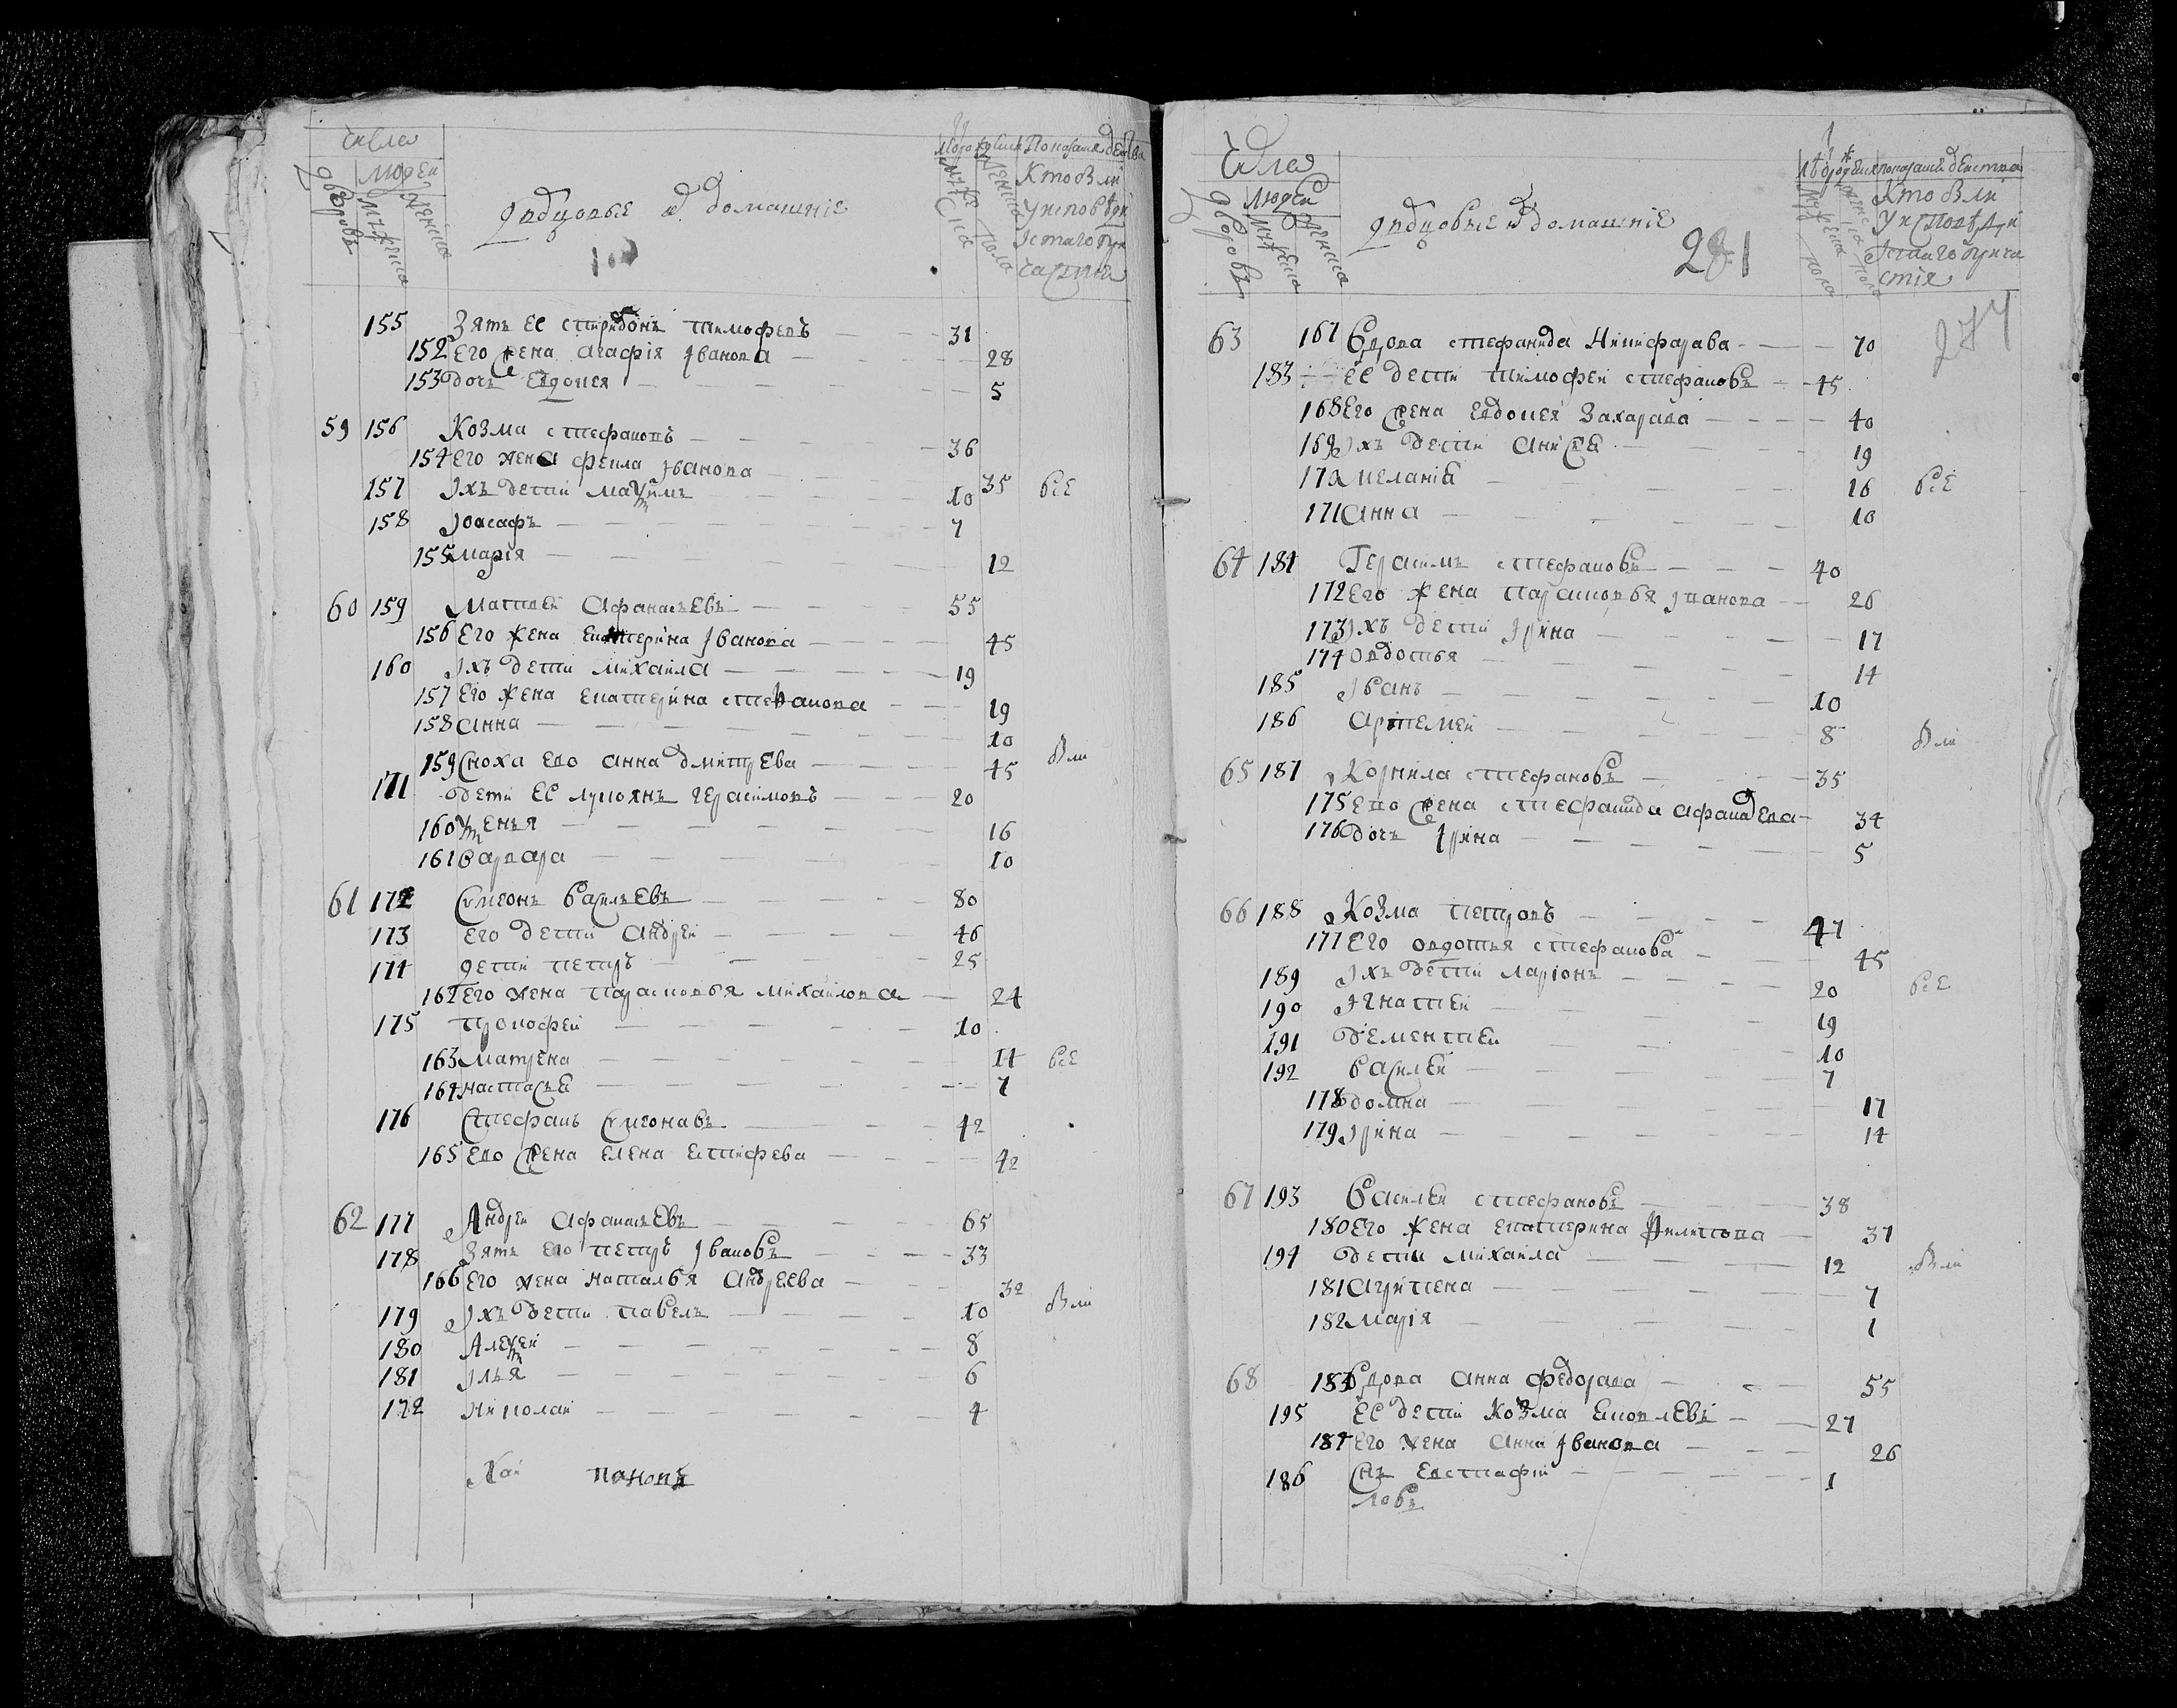 числа
людей
дворовъ
мужеска
женска
дворовые и домашніе
Показание действа
Кто были
у исповеди
и святаго при
частия
155 Зять ее спиридонъ тимофеевъ 31
152 Его жена агафія Iванова 28
153 дочь Евдокея 5
59 156 Козма стефановъ 36
154 Его жена фекла Iванова 35 всѣ
157 Iхъ дети максимъ 10
158 Iоасафъ 7
155 марія 12
60 159 Матвей Афанасьевъ 55
156 Его жена Екатерина Iванова 45
160 Iхъ дети михаила 19
157 Его жена екатерина стефанова 19
158 анна 10
159 Сноха ево анна дмитрева 45 были
171 дети ее лукоянъ герасимовъ 20
160 ксенья 16
161 варвара 10
61 172 Симеонъ васильевъ 80
173 его дети андрей 46
174 дети петръ 25
162 Его жена парасковья михайлова 24
175 прокофей 10
163 матрена 14 всѣ
164 настасья 7
176 Стефанъ Симеонавъ 42
165 Ево жена елена естифева 42
62 177 Андрей афанасьевъ 65
178 Зять его петръ Iвановъ 33
166 Его жена наталья андреева 32
179 Iхъ дети павелъ 10 были
180 Алексей 8
181 Iлья 6
172 николай 4
пановъ
числа
людей
дворовъ
мужеска
женска
дворовые и домашніе
281
показание действа
Кто были
у исповеди и
святаго прича
стія
274
63 167 Вдова стефанида Никифарава 70
183 ее дети тимофей стефановъ 45
168 Его жена евдокея Захарава 40
169 Iхъ дети анисья 19
170 меланія 16 всѣ
171 анна 10
64 184 Герасимъ стефановъ 40
172 Его жена парасковья Iванова 26
173 Iхъ дети Iрина 17
174 овдотья 14
185 Iванъ 10
186 артемей 8 были
65 187 Корнила стефановъ 35
175 Ево жена стефанида афанасева 34
176 дочь Iрина 5
66 188 Козма петровъ 47
177 Его овдотья стефанова 45
189 Iхъ дети ларіонъ 20 всѣ
190 Iгнатей 19
191 дементей 10
192 василей 7
178 домна 17
179 Iрина 14
67 193 Василей стефановъ 38
180 Его жена екатерина Филипова 37
194 дети михайла 12 были
181 агрипена 7
182 марія 1
68 183 Вдова анна федорава 55
195 ее дети козма яковлевъ 27
184 Его жена анна Iванова 26
186 сынъ евстафій 1